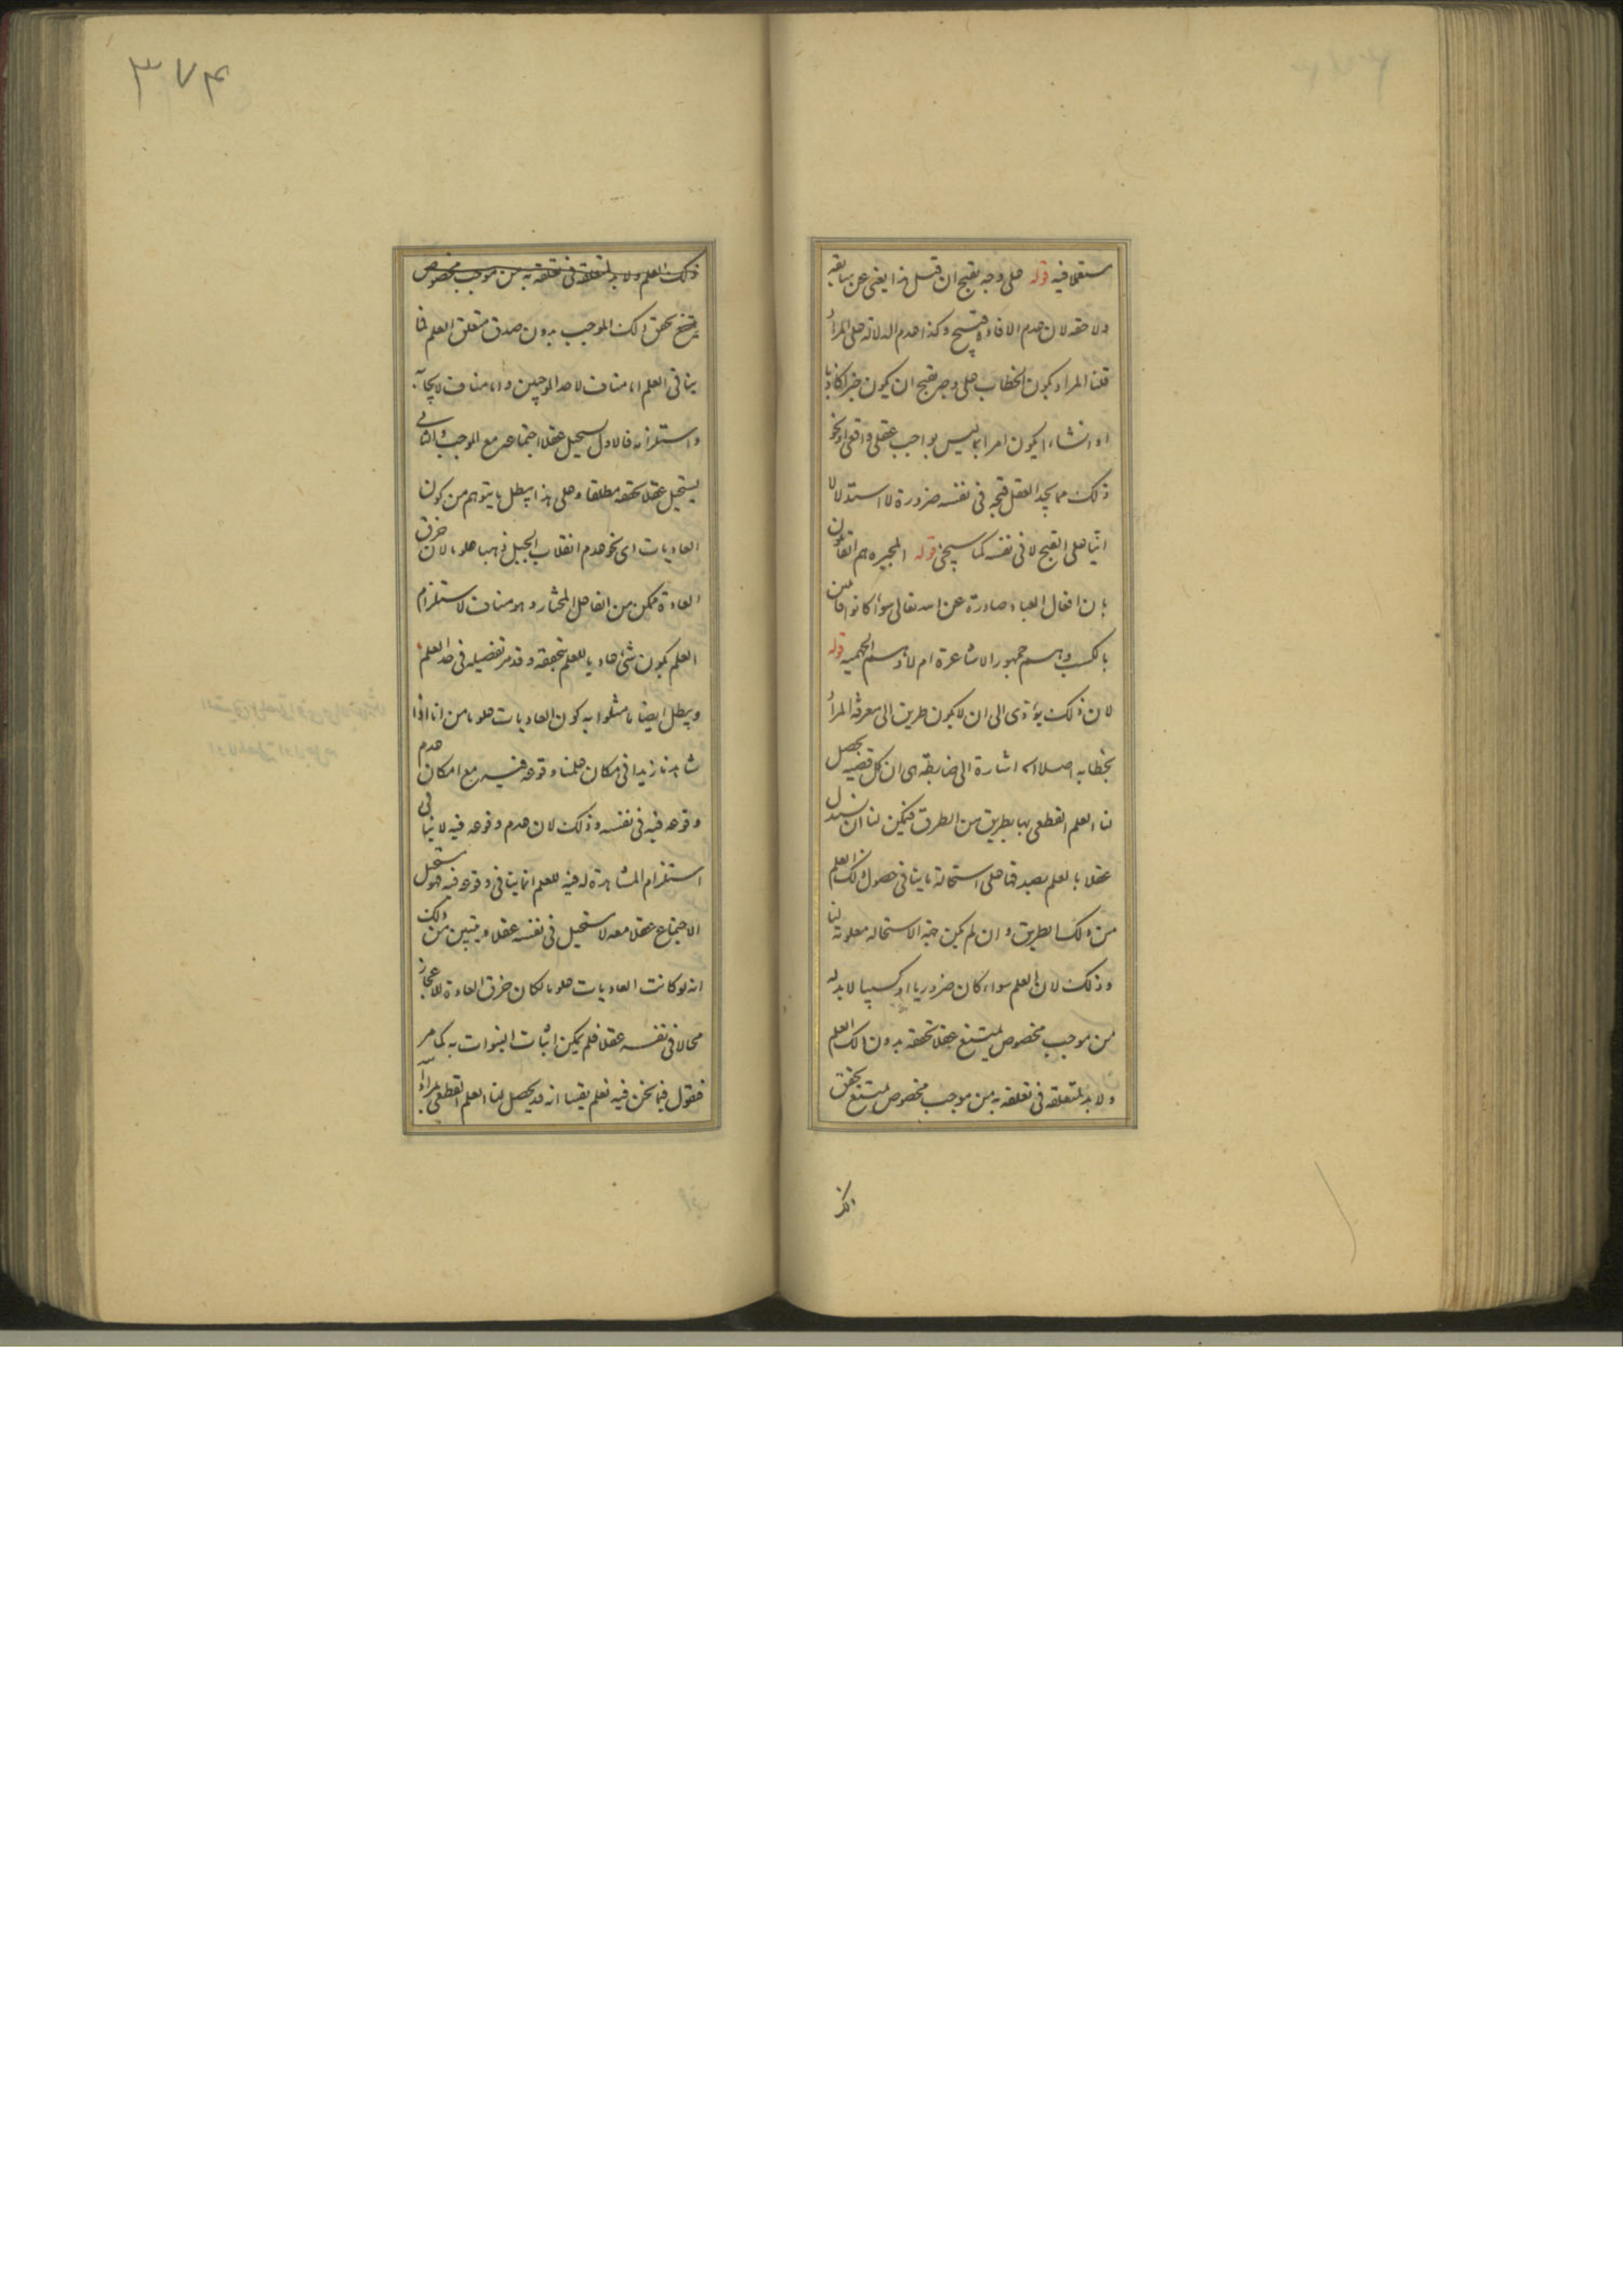 مستعملا فيه قوله على وجه يقبح ان قيل هذا يغنى عن سابقه
ولاحقه لان عدم الافادة قبيح وكذا عدم الدلالة على المراد
قلنا المراد بكون الخطاب على وجه يقبح ان يكون خبرا كاذبا
او انشاء يكون امرا بما ليس بواجب عقلى واقعى او نحو
ذلك مما يجد العقل قبحه فى نفسه ضرورة لا استدلالا
انيا على القبح لا فى نفسه كما سيجئ قوله المجبره هم القائلون
بان افعال العباد صادرة عن الله تعالى سواء كانوا قائلين
بالكسب وهم جمهور الاشاعرة ام لا وهم الجهميه قوله
لان ذلك يؤدى الى ان لا يكون طريق الى معرفة المراد
بخطابه اصلا اه اشارة الى ضابطة هى ان كل قضية يحصل
لنا العلم القطعى بها بطريق من الطرق فيمكن لنا ان نستدل
عقلا بالعلم بصدقها على استحالة ما ينافى حصول ذلك العلم
من ذلك الطريق وان لم يكن جهة الاستحالة معلومة لنا
وذلك لان العلم سواء كان ضروريا او كسبيا لابد له
من موجب مخصوص يمتنع عقلا تحققه بدون ذلك العلم
ولابد لمتعلقه فى تعلقه به من موجب مخصوص يمتنع تحقق
ذلك
٣٧٤
ذلك العلم ولابد لمتعلقه فى تعلقه به من موجب مخصوص
يمتنع تحقق ذلك الموجب بدون صدق متعلق العلم فما
ينافى العلم اما مناف لاحد الموجبين واما مناف لايجابه
واستلزامه فالاول يستحيل عقلا اجتماعه مع الموجب والثانى
يستحيل عقلا تحققه مطلقا وعلى هذا يبطل ما يتوهم من كون
العاديات اى نحو عدم انقلاب الجبل ذهبا علوما لان خرق
العادة ممكن من الفاعل المختار وهو مناف لاستلزام
العلم بكون شئ عاديا للعلم بتحققه وقد مر تفصيله فى حد العلم
ويبطل ايضا ما مثلوا به كون العاديات علوما من انا اذا
شاهدنا زيدا فى مكان علمنا وقوعه فيه مع امكان عدم
وقوعه فيه فى نفسه وذلك لان عدم وقوعه فيه لا ينافى
استلزام المشاهدة له فيه للعلم انما ينافى وقوعه فيه فهو مستحيل
الاجتماع عقلا معه لا مستحيل فى نفسه عقلا ويتبين من ذلك
انه لو كانت العاديات علوما لكان خرق العادة للاعجاز
محالا فى نفسه عقلا فلم يمكن اثبات النبوات به كما مر
فنقول فيما نحن فيه نعلم يقينا انه قد يحصل لنا العلم القطعى بمراد الله